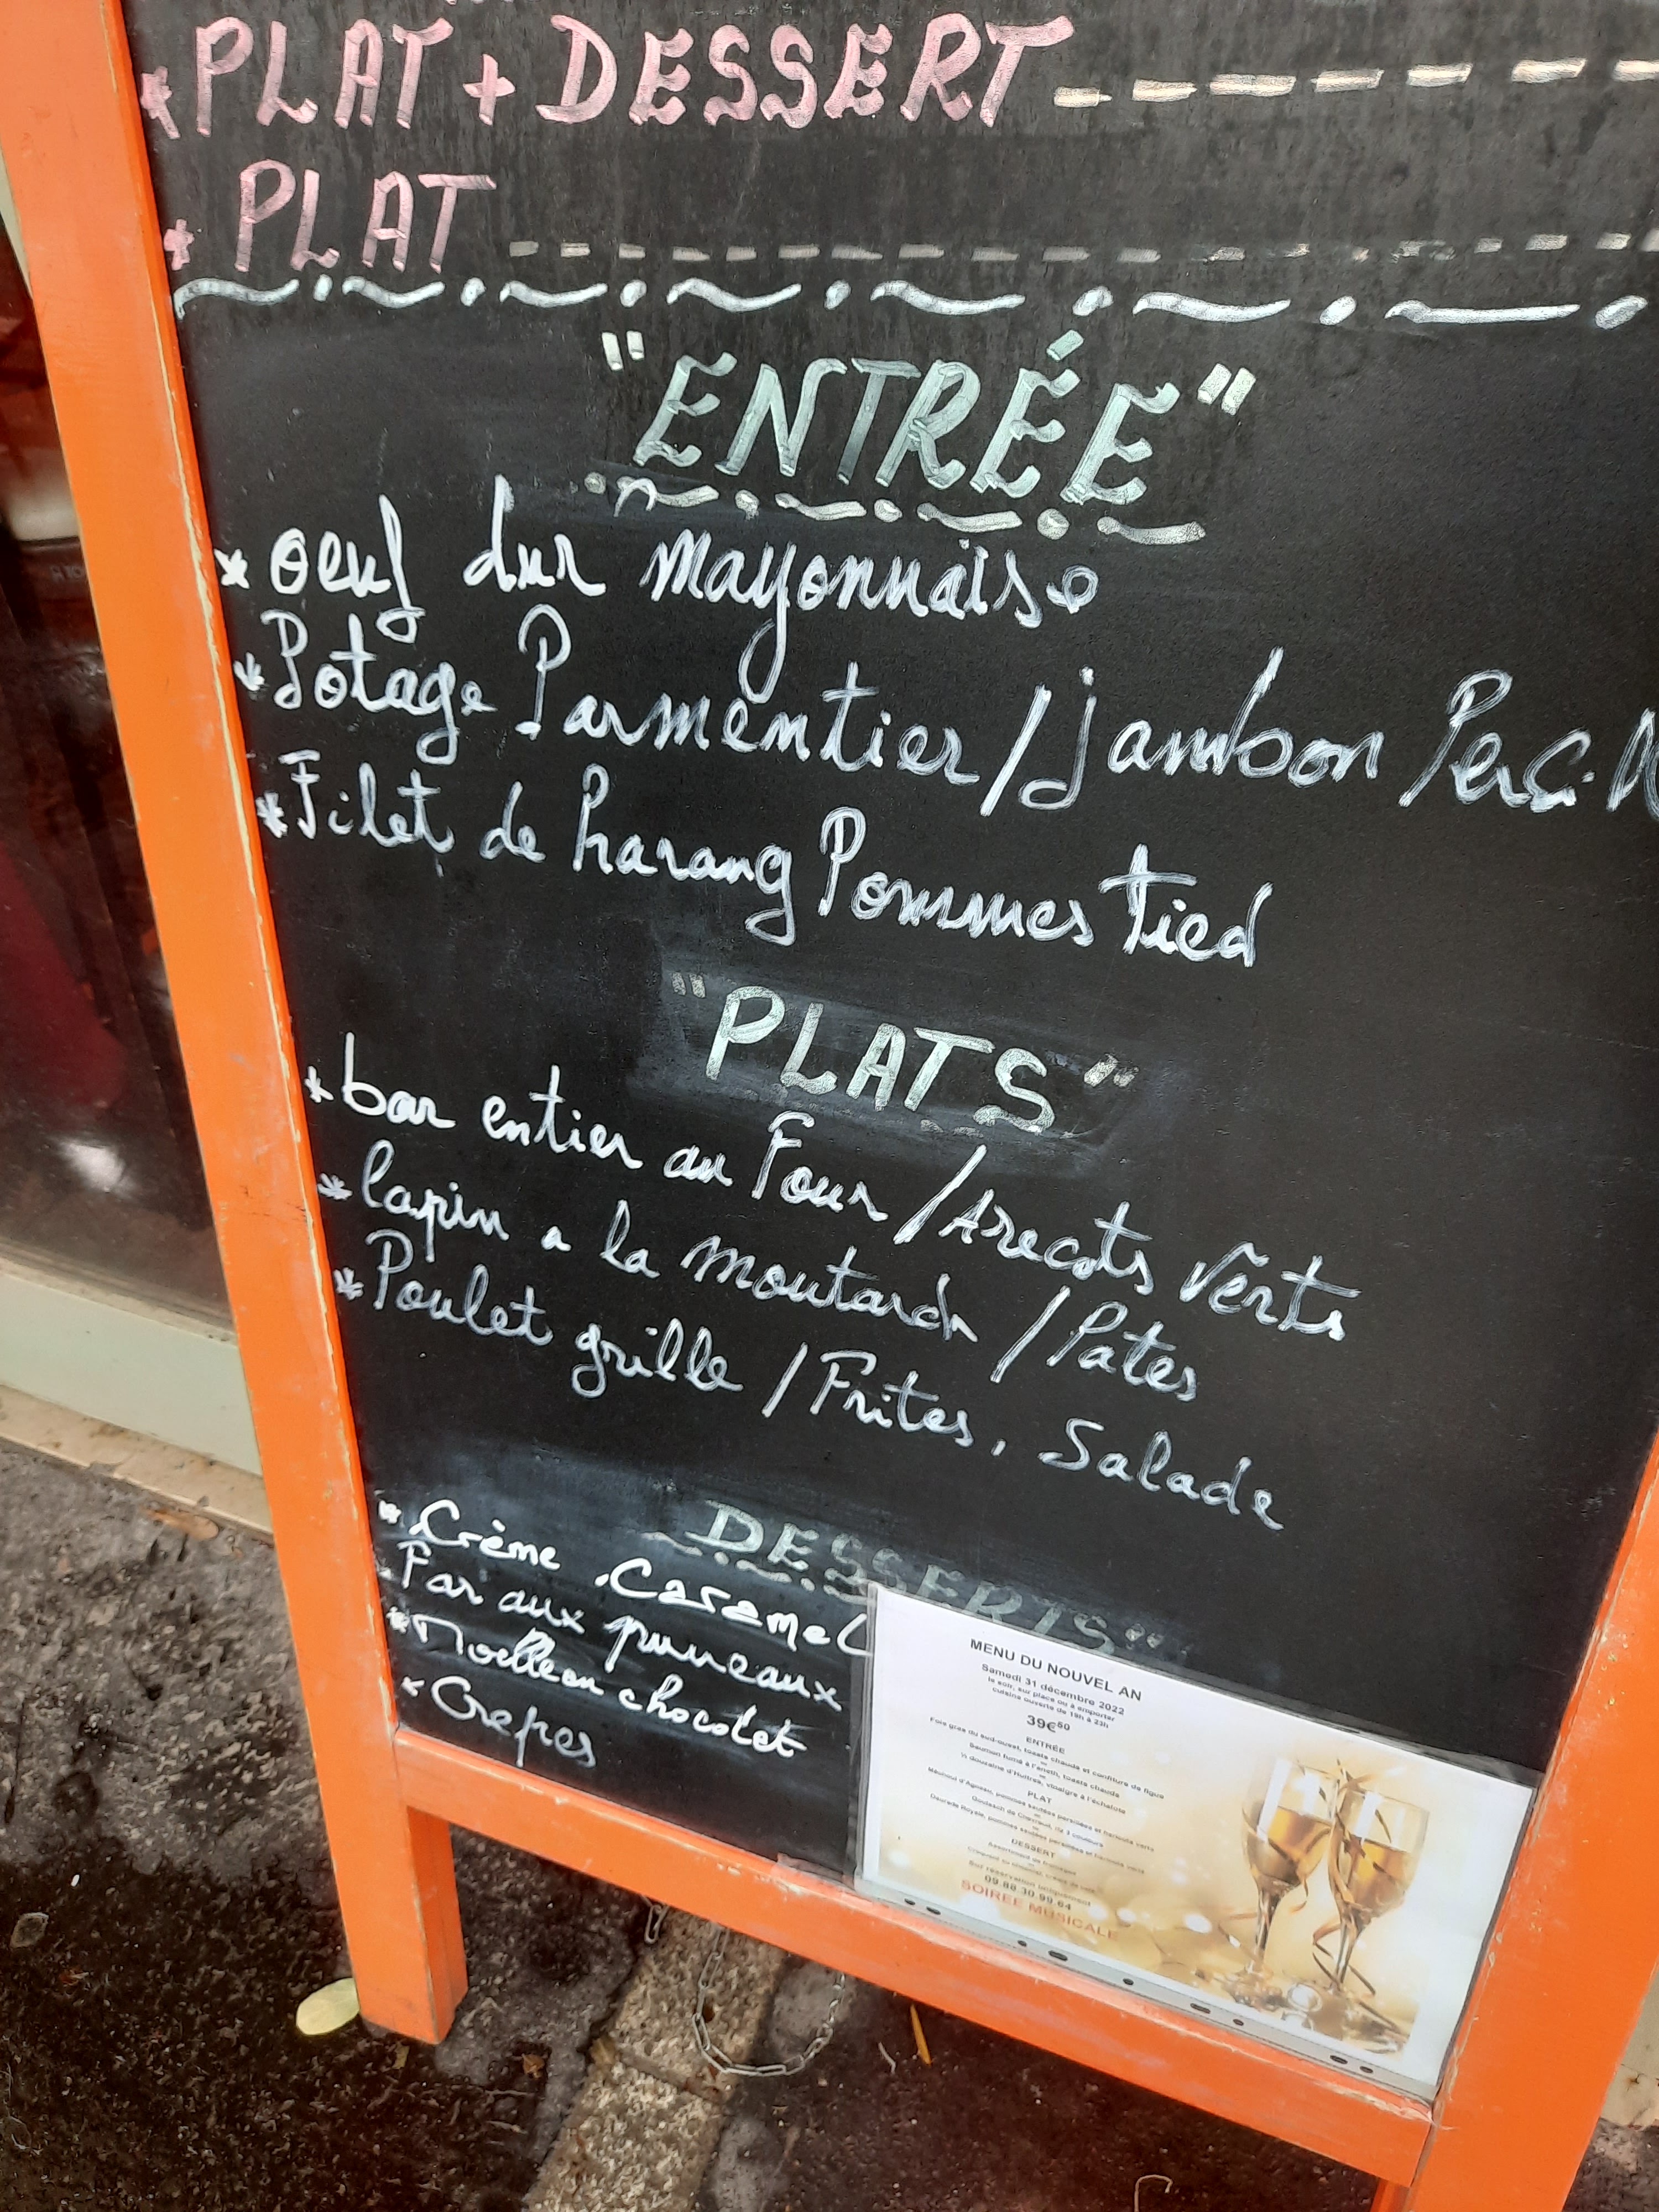 * PLAT + DESSERT
* PLAT
"ENTRÉE"
* oeuf dur mayonnaise
* Potage Parmentier / jambon
* Filet de harang Pommes tied
"PLATS"
* bar entier au Four / Arecots verts
* lapin a la moutard / Pates
* Poulet grille / Frites, Salade
DESSERTS"
* Crème Caramel
Far aux pruneaux
* Moelleau chocolet
* Crepes
MENU DU NOUVEL AN
Samedi 31 décembre 2022
le soir, sur place ou à emporter
cuisine ouverte de 19h à 23h
39€50
ENTRÉE
Foie gras du sud-ouest, toasts chauds et confiture de figue
Saumon fumé à l'aneth, toasts chauds
½ douzaine d'Huitres, vinaigre à l'échalote
PLAT
pommes sautées persillées et haricots verts
riz 3 couleurs
Daurade Royale, pommes sautées persillées et haricots verts
DESSERT
Sur réservation uniquement
09.88.30.99.64
SOIREE MUSICALE